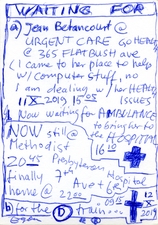 WAITING FOR
a) Jean Betancourt @
URGENT CARE GOHEALTH
@ 365 FLATBUSH ave
(I came to her place to help
w/computer stuff, no
I am dealing w/her HEALTH
ISSUES
11 X 2019 15 05
Now waiting for AMBULANCE
to bring her to
the HOSPITAL
16 10
NOW still @
Methodist
20 45 Presbyterian Hospital
finally 7th Ave + 6th
home @ 22 00
b) for the D train
09 15
12
X
2019